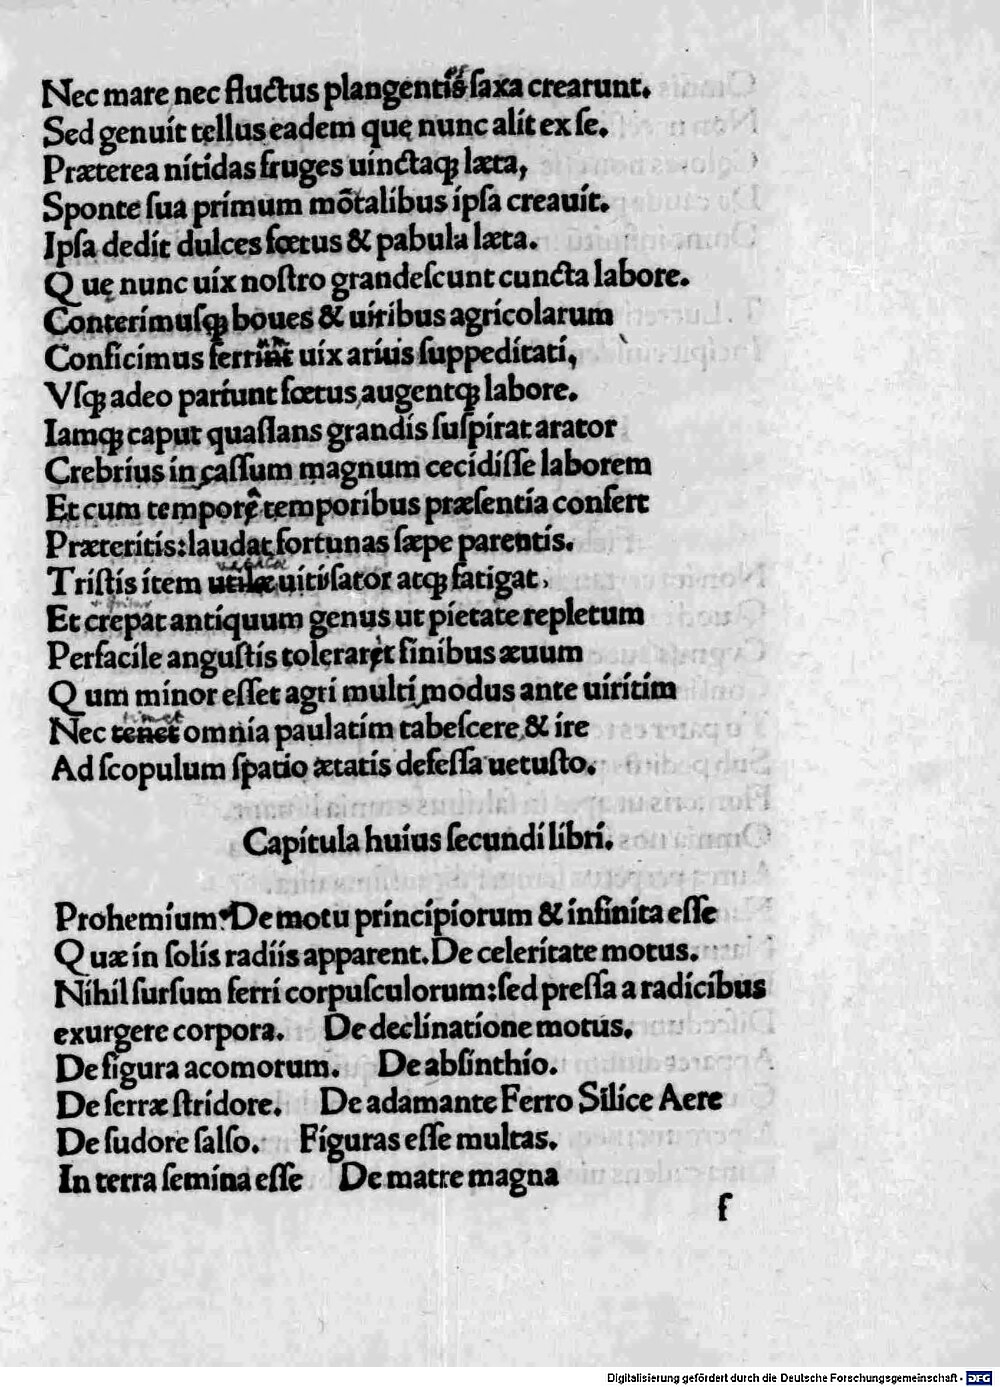 Nec mare nec fluctus plangentis saxa crearunt.
Sed genuit tellus eadem quę nunc alit ex se.
Præterea nitidas fruges uinctaqꝫ læta,
Sponte sua primum mōtalibus ipsa creauit.
Ipsa dedit dulces fœtus & pabula læta.
Quę nunc uix nostro grandescunt cuncta labore.
Conterimusqꝫ boues & uiribus agricolarum
Conficimus uix ariuis suppeditati,
Vsqꝫ adeo pariunt fœtus, augentqꝫ labore.
Iamqꝫ caput quassans grandis suspirat arator
Crebrius in cassum magnum cecidisse laborem
Et cum temporę temporibus præsentia confert
Præteritis: laudat fortunas sæpe parentis.
Tristis item uitis sator atqꝫ fatigat,
Et crepat antiquum genus ut pietate repletum
Perfacile angustis toleraret finibus æuum
Qum minor esset agri multi modus ante uiritim
Nec tenet omnia paulatim tabescere & ire
Ad scopulum spatio ætatis defessa uetusto.
Capitula huius secundi libri.
Prohemium. De motu principiorum & infinita esse
Quæ in solis radiis apparent. De celeritate motus.
Nihil sursum ferri corpusculorum: sed pressa a radicibus
exurgere corpora. De declinatione motus.
De figura acomorum. De absinthio.
De serræ stridore. De adamante Ferro Silice Aere
De sudore salso. Figuras esse multas.
In terra semina esse De matre magna
f
Digitalisierung gefördert durch die Deutsche Forschungsgemeinschaft - DFG